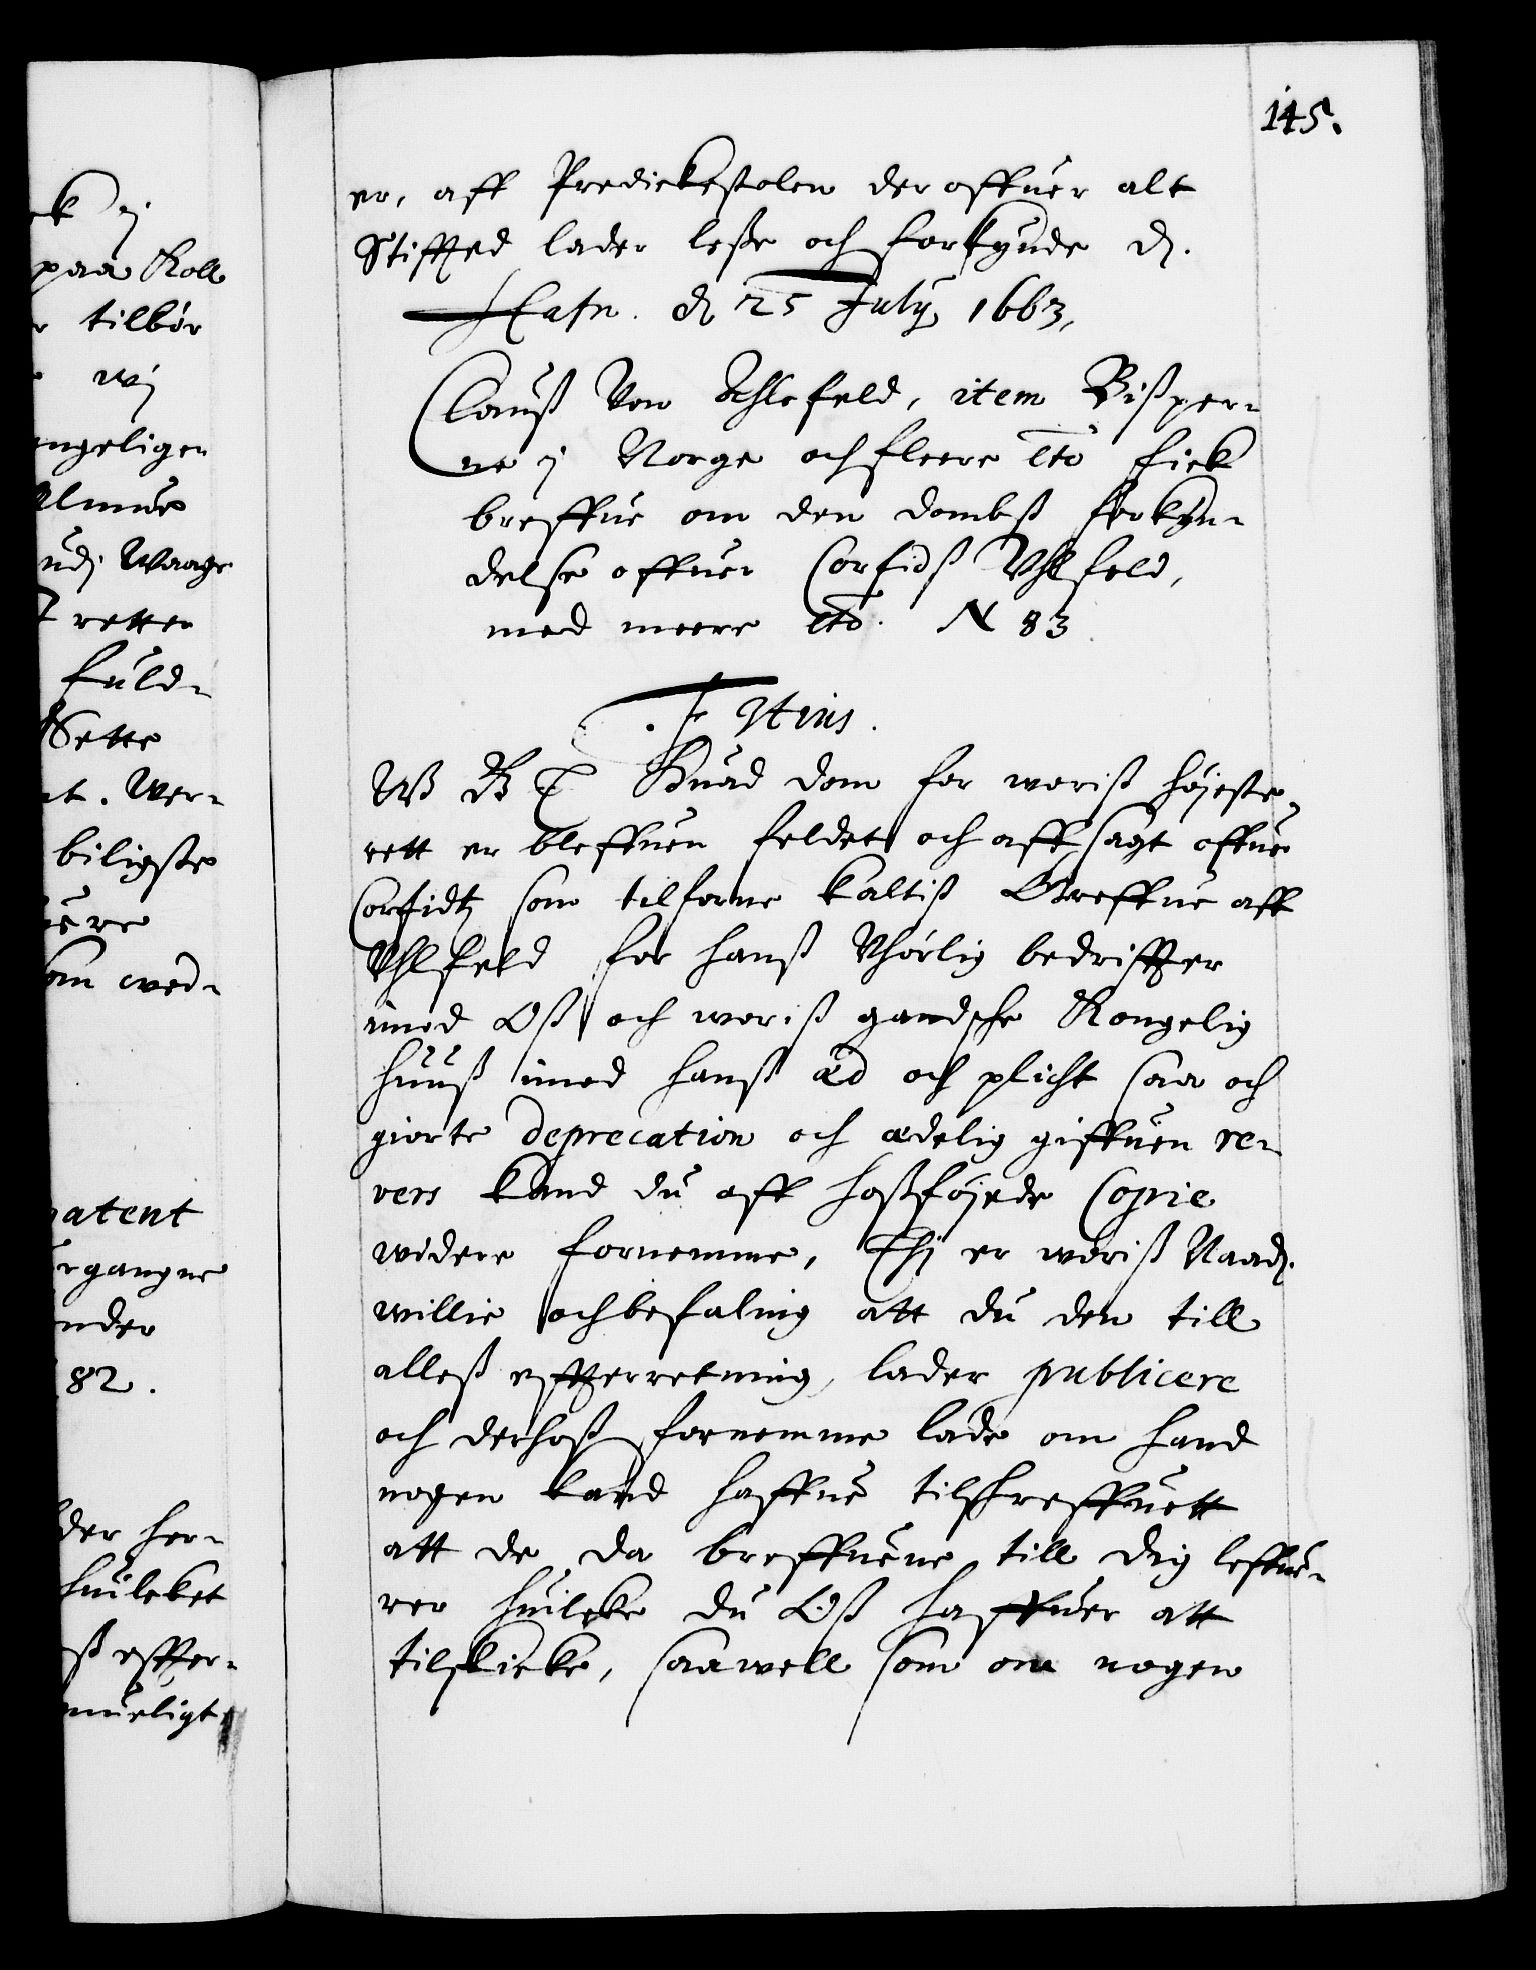 145.
er, aff Predickestolen der offuer alt
Stifftet lader leße och forkynde D.
Hafn. d 25 July 1663,
Clauß Von Ahlefeld, item Bisper¬
ne i Norge och fleere etc fick
breffue om den dombß forkyn¬
delse offuer Corfidß Vhlfeld,
med meere etc. N 83
F 3tius.
W B T Huad dom for woriß højeste
rett er bleffuen feldet och affsagt offuer
Corfidtz som tilforne kaltiß Greffue aff
Vhlfeld for hanß Vhørlig bedriffter
imod Oß och woriß gandsche Kongelig
huuß imod hanß æd och plicht saa och
giorte deprecation och ædelig giffuen re¬
vers kand du aff hoßføjede Copie
widere fornemme, Thi er woriß Naad.
willie och befaling att du den till
alleß effterretning, lader publicere
och derhoß fornemme lade om hand
nogen kand haffue tilskreffuett
att de da breffuene till dig leffue¬
rer huilcke du Oß haffuer att
tilskicke, saawell som om nogen
ek i
paa Roll
r tilbør
wj
engeligen
Almue
udj Waage
retter
fuld¬
Sette
nt. Wer¬
biligste
som wed¬
patent
rgangne
nder
82.
der her¬
huilcket
ß effter¬
mueligt